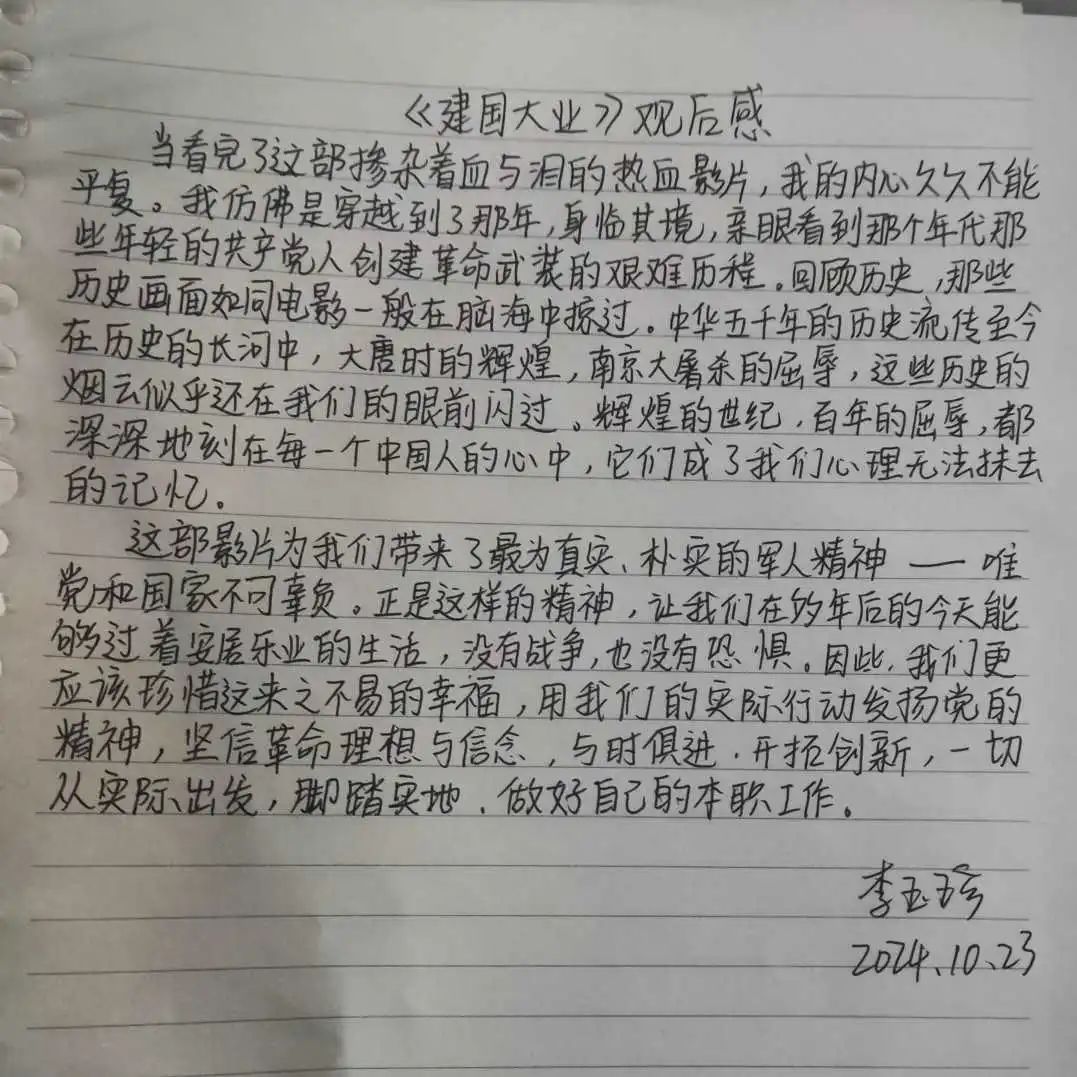 《建国大业》观后感
当看完了这部掺杂着血与泪的热血影片，我的内心久久不能
平复。我仿佛是穿越到了那年，身临其境，亲眼看到那个年代那
些年轻的共产党人创建革命武装的艰难历程。回顾历史，那些
历史画面如同电影一般在脑海中掠过。中华五千年的历史流传至今
在历史的长河中，大唐时的辉煌，南京大屠杀的屈辱，这些历史的
烟云似乎还在我们的眼前闪过。辉煌的世纪，百年的屈辱，都
深深地刻在每一个中国人的心中，它们成了我们心理无法抹去
的记忆。
这部影片为我们带来了最为真实、朴实的军人精神——唯
党和国家不可辜负。正是这样的精神，让我们在多年后的今天能
够过着安居乐业的生活，没有战争，也没有恐惧。因此，我们更
应该珍惜这来之不易的幸福，用我们的实际行动发扬党的
精神，坚信革命理想与信念，与时俱进、开拓创新，一切
从实际出发，脚踏实地、做好自己的本职工作。
李玉
2024.10.23